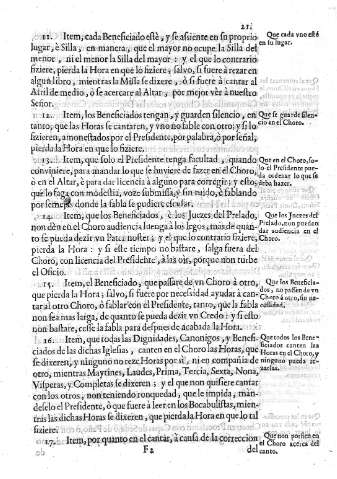 21.
11. Item, cada Beneficiado estè, y se assiente en su proprio
lugar, ò Silla, en manera, que el mayor no ocupe la Silla del
menor, ni el menor la Silla del mayor: y el que lo contrario
fiziere, pierda la Hora en que lo fiziere; salvo, si fuere à rezar en
algun libro, mientras la Missa se dizere, ò si fuere à cantar al
Atril de medio, ò se acercare al Altar, por mejor vèr à nuestro
Señor.
Que cada vno estè
en su lugar.
12. Item, los Beneficiados tengan, y guarden silencio, en
tanto, que las Horas se cantaren, y vno no fable con otro; y si lo
fizieren, amonestados por el Presidente, por palabra, ò por señal,
pierdan la Hora en que lo fiziere.
Que se guarde silen-
cio en el Choro.
13. Item, que solo el Presidente tenga facultad, quando
conviniere, para mandar lo que se huviere de fazer en el Choro,
ò en el Altar, è para dar licencia à alguno para corregir; y esto,
que lo faga con modestia, voze submissa, y sin ruido, è fablando
por semejo donde la fabla se pudiere escusar.
Que en el Choro, so-
lo el Presidente pue-
da ordenar lo que se
deba hazer.
14. Item, que los Beneficiados, è los Juezes del Prelado,
non dèn en el Choro audiencia luenga à los legos, mas de quan-
to se pueda dezir vn Pater noster; y el que lo contrario fiziere,
pierda la Hora: y si este tiempo no bastare, salga fuera del
Choro, con licencia del Presidente, à los oìr, porque non turbe
el Oficio.
Que los Juezes del
Prelado, non puedan
dar audiencia en el
Choro.
15. Item, el Beneficiado, que passare de vn Choro à otro,
que pierda la Hora; salvo, si fuere por necessidad ayudar à can-
tar al otro Choro, ò fablar con el Presidente, tanto, que la fabla
non sea mas larga, de quanto se pueda dezir vn Credo: y si esto
non bastare, cesse la fabla para despues de acabada la Hora.
Que los Beneficia-
dos, no passen de vn
Choro à otro, sin ne-
cessidad.
16. Item, que todas las Dignidades, Canonigos, y Benefi-
ciados de las dichas Iglesias, canten en el Choro las Horas, que
se dixeren, y ninguno no reze Horas por si, ni en compañia de
otro, mientras Maytines, Laudes, Prima, Tercia, Sexta, Nona,
Visperas, y Completas se dixeren; y el que non quisiere cantar
con los otros, non teniendo ronquedad, que le impida, màn-
deselo el Presidente, ò que fuere à leer en los Bocabulistas, mien-
tras las dichas Horas se dixeren, que pierda la Hora en que lo tal
fiziere.
Que todos los Bene-
ficiados canten las
Horas en el Choro, y
ninguno pueda re-
zarlas.
17. Item, por quanto en el cantar, à causa de la correccion
Que non porfien en
el Choro acerca del
canto.
F 2
del